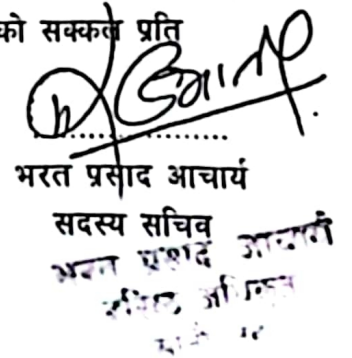 को सक्कल प्रति
भरत प्रसाद आचार्य
सदस्य सचिव
भरत प्रसाद आचार्य